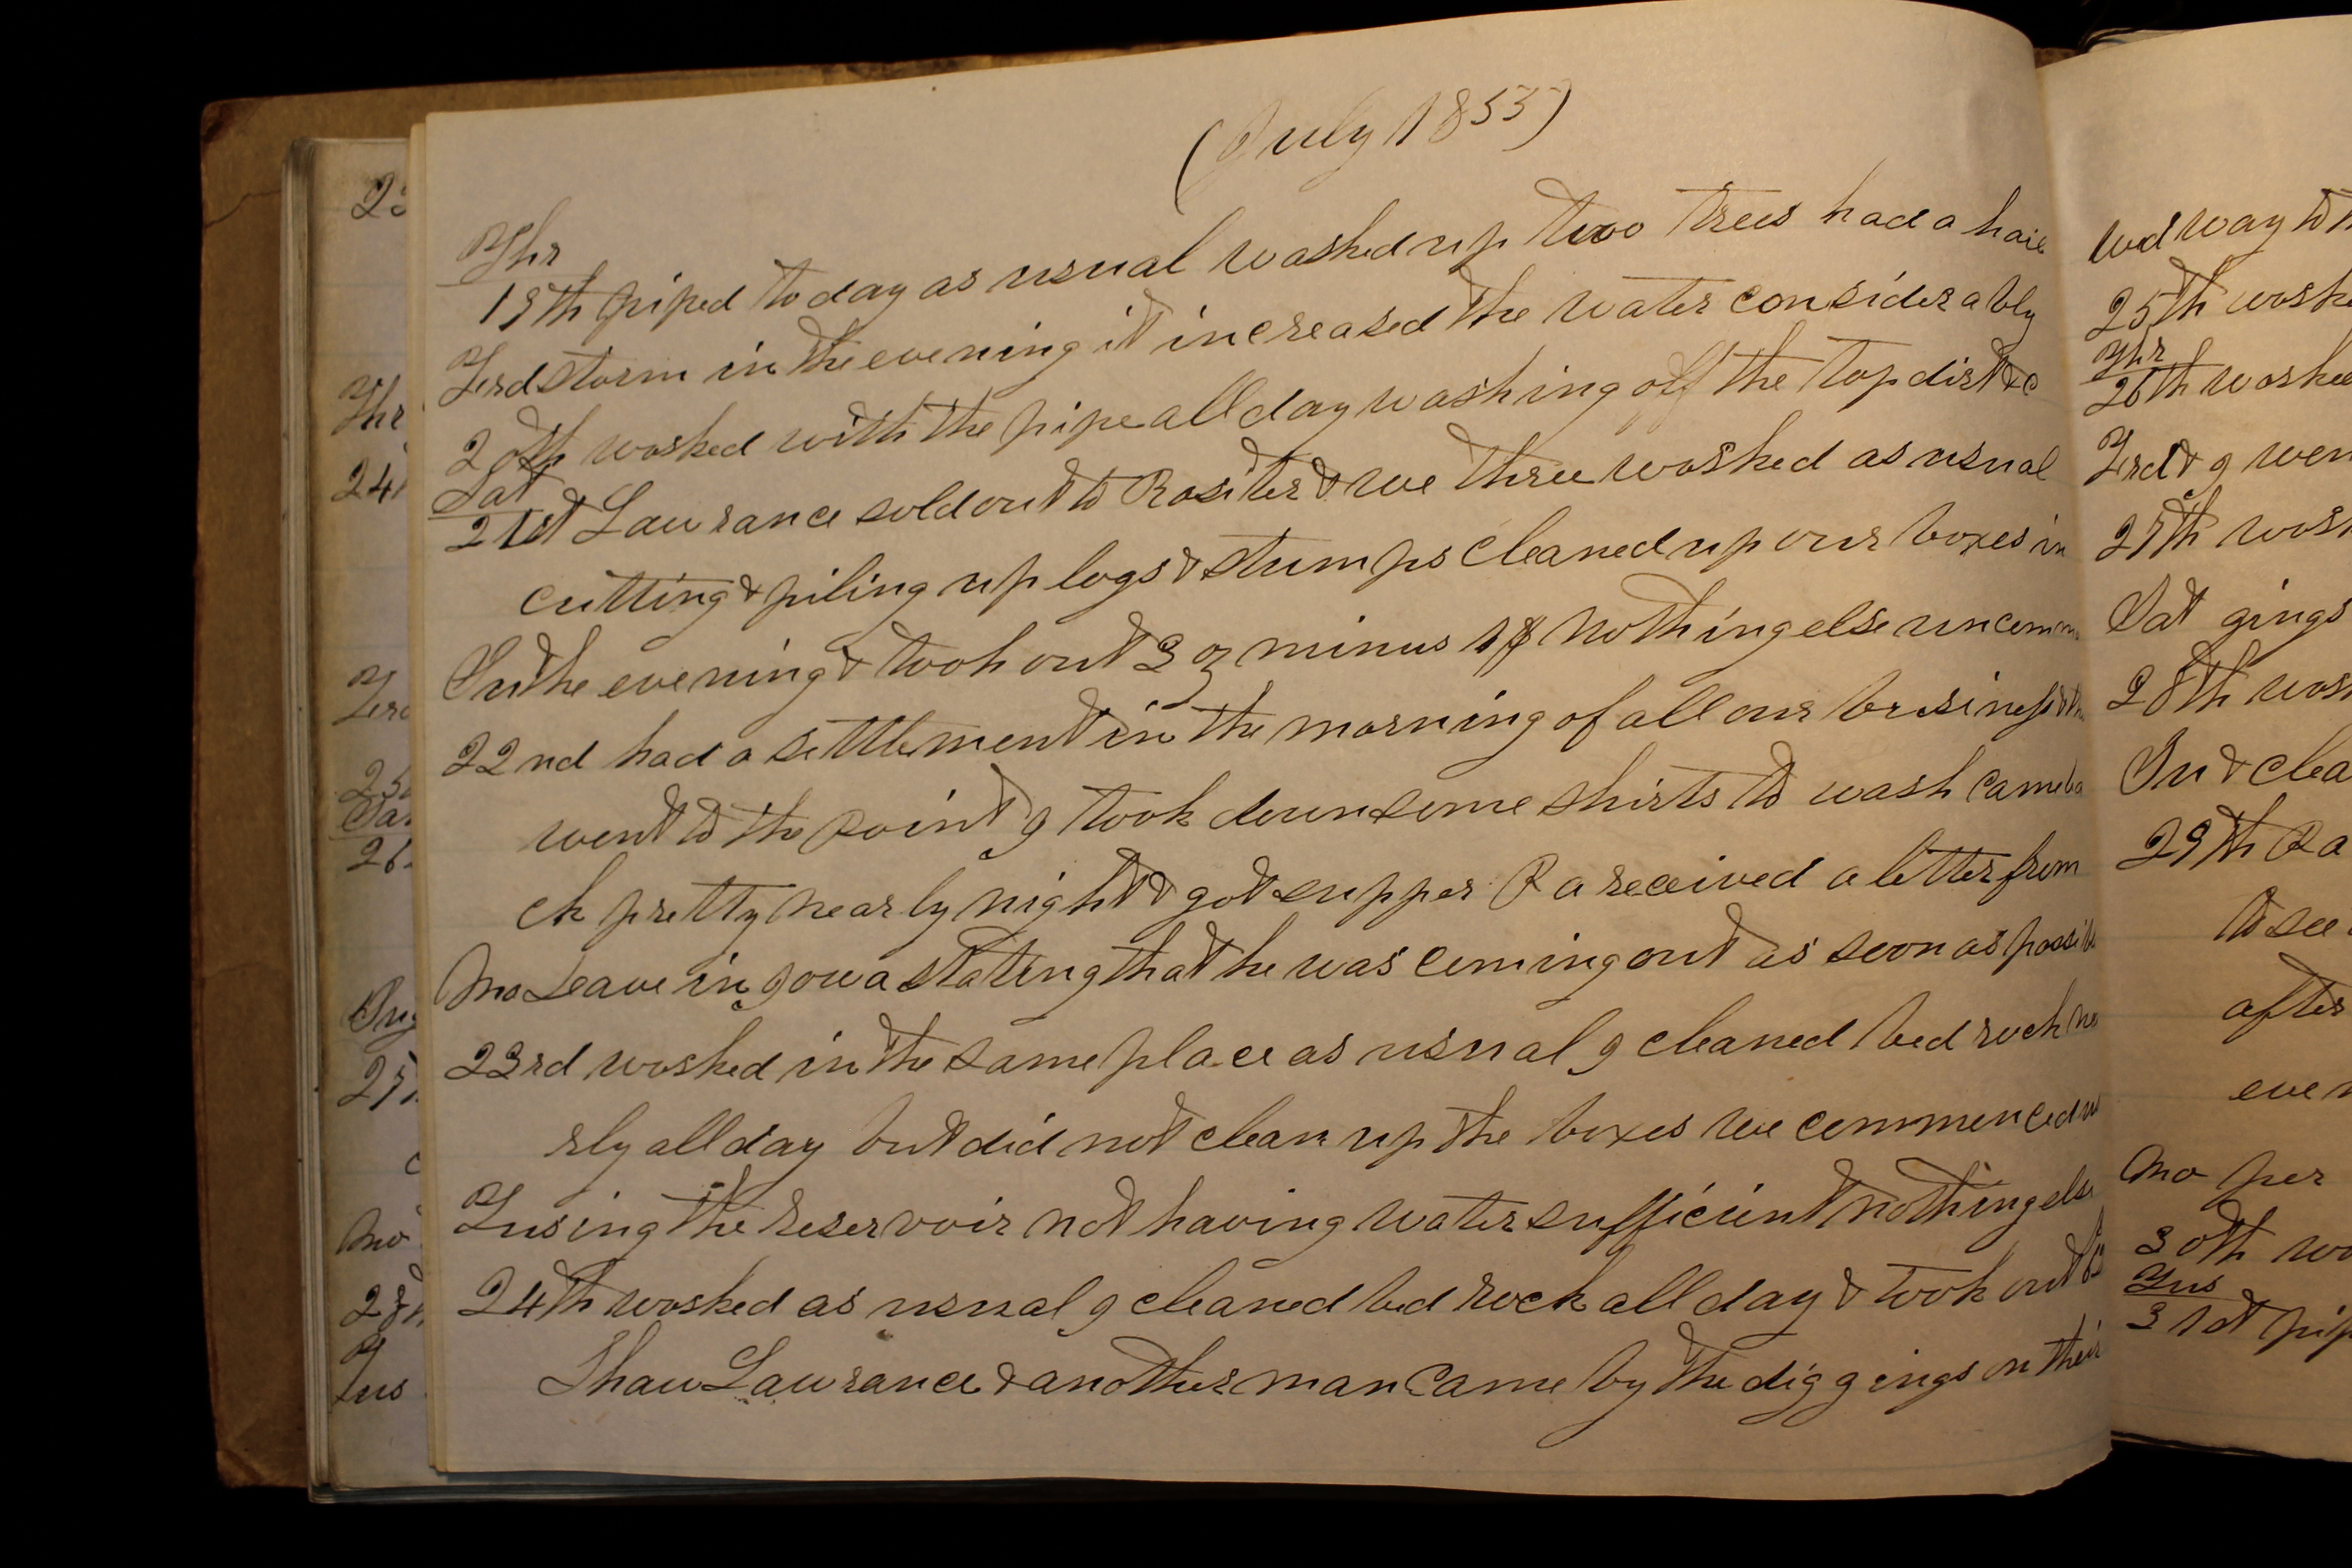 23
Thr
24
26
27
mo
28
Tus
(July 1855)
Thr
19th piped to day as usual washed up two trees had a hail
Frid storm in the evening it increased the water considerably
20th worked with the pipe all day washing off the top dirt &c
Sat
21st Lawrance sold out to Rositer & we three worked as usual
cutting & piling up logs & stumps cleaned up our boxes in
Sun the evening & took out 3 oz minus 1$ nothing else uncomm
22nd had a settlement in the morning of all our business &
went to the Point I took down some shirts to wash came ba
ck pretty nearly night & got supper Ra received a letter from
mo Leave in Iowa stating that he was coming out as soon as possible
23rd worked in the same place as usual I cleaned bed rock nea
rly all day but did not clean up the boxes we commenced
Tus using the reservoir not having water sufficient nothing else
24th worked as usual I cleaned bed rock all day & took out
Shaw Lawrance & another man came by the diggings on their
wed way to
25th worked
Thr
26th worked
Frid & I wen
27th work
Sat gings
28th wor
Sun & clea
29th Ra
to see
after
even
mo per
30th wo
Tus
31st pip